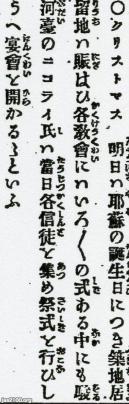 ○クリストマス 明日ハ耶蘇の誕生日につき築地居
留地ハ賑はひ各教會にいろ〱の式ある中にも駿
河臺のニコライ氏ハ當日各信徒を集め祭式を行ひし
うへ宴會を開かるゝといふ
jaa2100.org